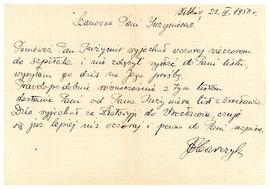 22. V. 1950r.
Szanowna Pani Inżynierowo!
Ponieważ Pan Inżynier wyjechał wczoraj wieczorem
do szpitala i nie zdążył wysłać do Pani listu,
wysyłam go dziś na Jego prośbę.
Prawdopodobnie równocześnie z tym listem
dostanie Pani od Pana Inżyniera list z Wrocławia.
Dziś wyjechał ze Złotoryi do Wrocławia, czuje
się już lepiej niż wczoraj i pewno do Pani napisze.